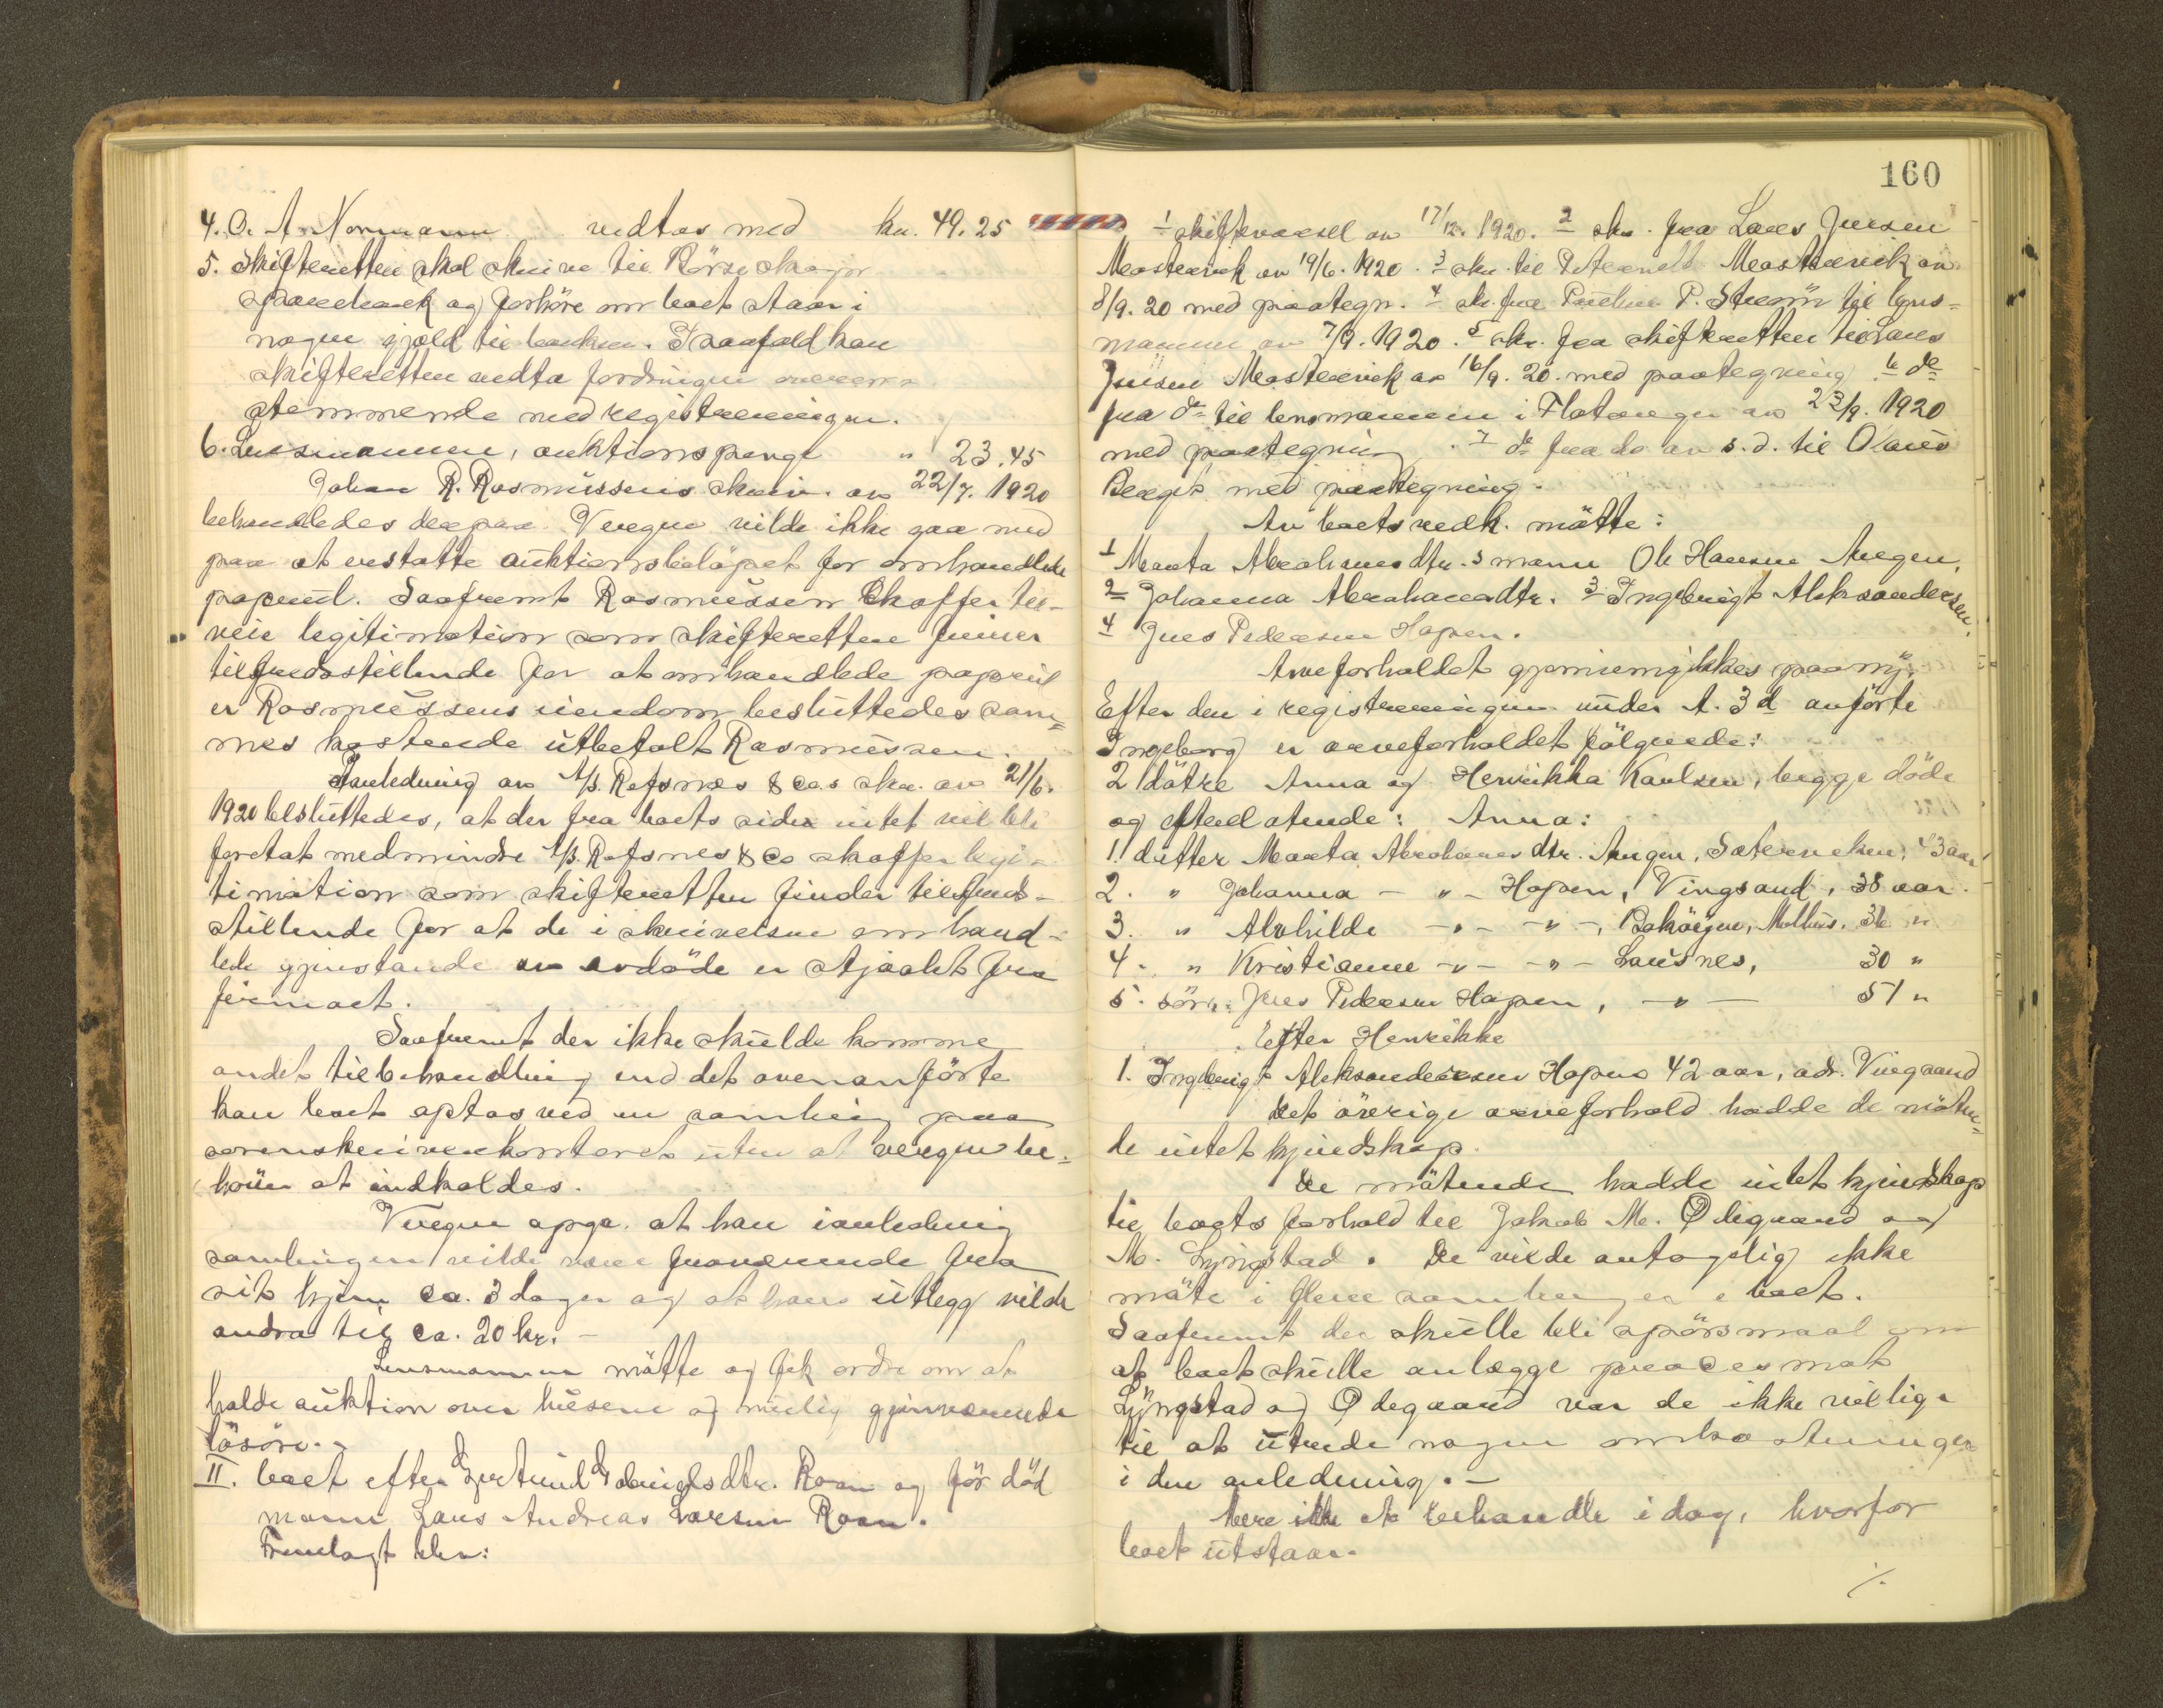 4. O. A. Normann vedtas med kr. 49.25
5. Skifteretten skal skrive til Börseskogn
sparebank og forhöre om boet staar i
nogen gjæld til banken. I saafald kan
skifteretten vedta fordringen overens-
stemmende med registreringen.
6. Lensmannen, auktionspenge " 23.45
Johan R. Rasmussens skriv. av 22/7. 1920
behandledes derpaa. Vergen vilde ikke gaa med
paa at erstatte auktionsbelöpet for omhandlede
papruil. Saafremt Rasmussen skaffer til-
veie legitimation som skifteretten finner
tilfredsstillende for at omhandlede papruil
er Rasmussens eiendom besluttedes sam=
mes kostende utbetalt Rasmussen.
I anledning av A/S. Refsnes & Co.s skr. av 21/6.
1920 besluttedes, at der fra boets side intet vil bli
foretat medmindre A/S. Refsnes & Co skaffer legi-
timation som skifteretten finder tilfreds-
stillende for at de i skrivelsen omhand-
lede gjenstande av avdöde er stjaalet fra
firmaet.
Saafremt der ikke skulde komme
andet til behandling end det ovenanförte
kan boet optas ved en samling paa
sorenskriverkontoret uten at vergen be-
höver at indkaldes.
Vergen opga. at han i anledning
samlingen vilde være fraværende fra
sit hjem ca. 3 dager og at hans utlegg vilde
andra til ca. 20 kr. –
Lensmannen mötte og fik ordre om at
holde auktion over husene og mulig gjenværende
lösöre. –
II. boet efter Gertrud Iobrigtsdtr. Roan og för död
mann Lars Andreas Larsen Roan.
Fremlagt blev:
160
1 skiftevarsel av 17/12. 1920. 2 skr. fra Lars Juesen
Mastervik av 19/6. 1920. 3 skr. til Peternelle Mastervik av
8/9. 20 med paategn. 4 skr. fra Pauline P. Ström til lens-
mannen av 7/9. 1920. 5 skr. fra skifteretten til Lars
Juesen Mastervik av 16/9. 20. med paategning 6 do
fra do til lensmannen i Flatanger av 23/9. 1920
med paategning. 7 do fra do av s.d. til Olaus
Bergst med paategning.
Av boets vedk. mötte:
1 Marta Abrahamsdtr.s mann Ole Hansen Angen,
2 Johanna Abrahamsdtr. 3 Ingebrigt Aleksandersen.
4 Jens Pedersen Hopen.
Arveforholdet gjennemgikkes paa ny.
Efter den i registreringen under A. 3 d anförte
Ingeborg er arveforholdet fölgende:
2 dötre Anna og Henrikka Karlsen, begge döde
og efterlatende: Anna:
1. datter Marta Abrahamsdtr. Angen, Sæterviken, 43 aar
2. " Johanna – " – Hopen, Vingsand, 38 aar.
3. " Alvhilde – " – – " –, Boköien, Malhus, 36 "
4. " Kristianne – " – – " – Lausnes, 30 "
5. sön: Jens Pedersen Hopen, – " – 51 "
Efter Henrikke
1. Ingebrigt Aleksandersen Hopen 42 aar, adr. Vingsand
Det övrige arveforhold hadde de möten=
de intet kjendskap.
De mötende hadde intet kjendskap
til boets forhold til Jakob M. Ødegaard og
M. Lyngstad. De vilde antagelig ikke
möte i flere samlinger i boet.
Saafremt der skulle bli spörsmaal om
at boet skulle anlægge proces mot
Lyngstad og Ødegaard var de ikke villige
til at utrede nogen omkostninger
i den anledning. –
Mere ikke at behandle i dag, hvorfor
boet utstaar.